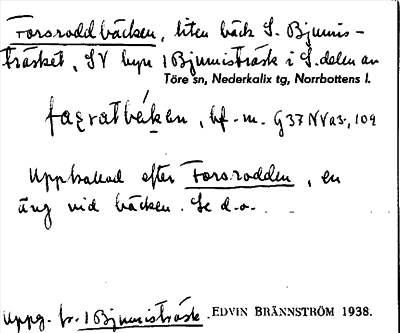 Forsroddbäcken, liten bäck S. Bjumis-
träsket, SV byn 1 Bjumisträsk i S. delen av
Töre sn, Nederkalix tg, Norrbottens l.
bf. m.
Uppkallad efter Forsrodden, en
äng vid bäcken. Se d.o.
Uppg. fr. 1 Bjumisträsk. EDVIN BRÄNNSTRÖM 1938.